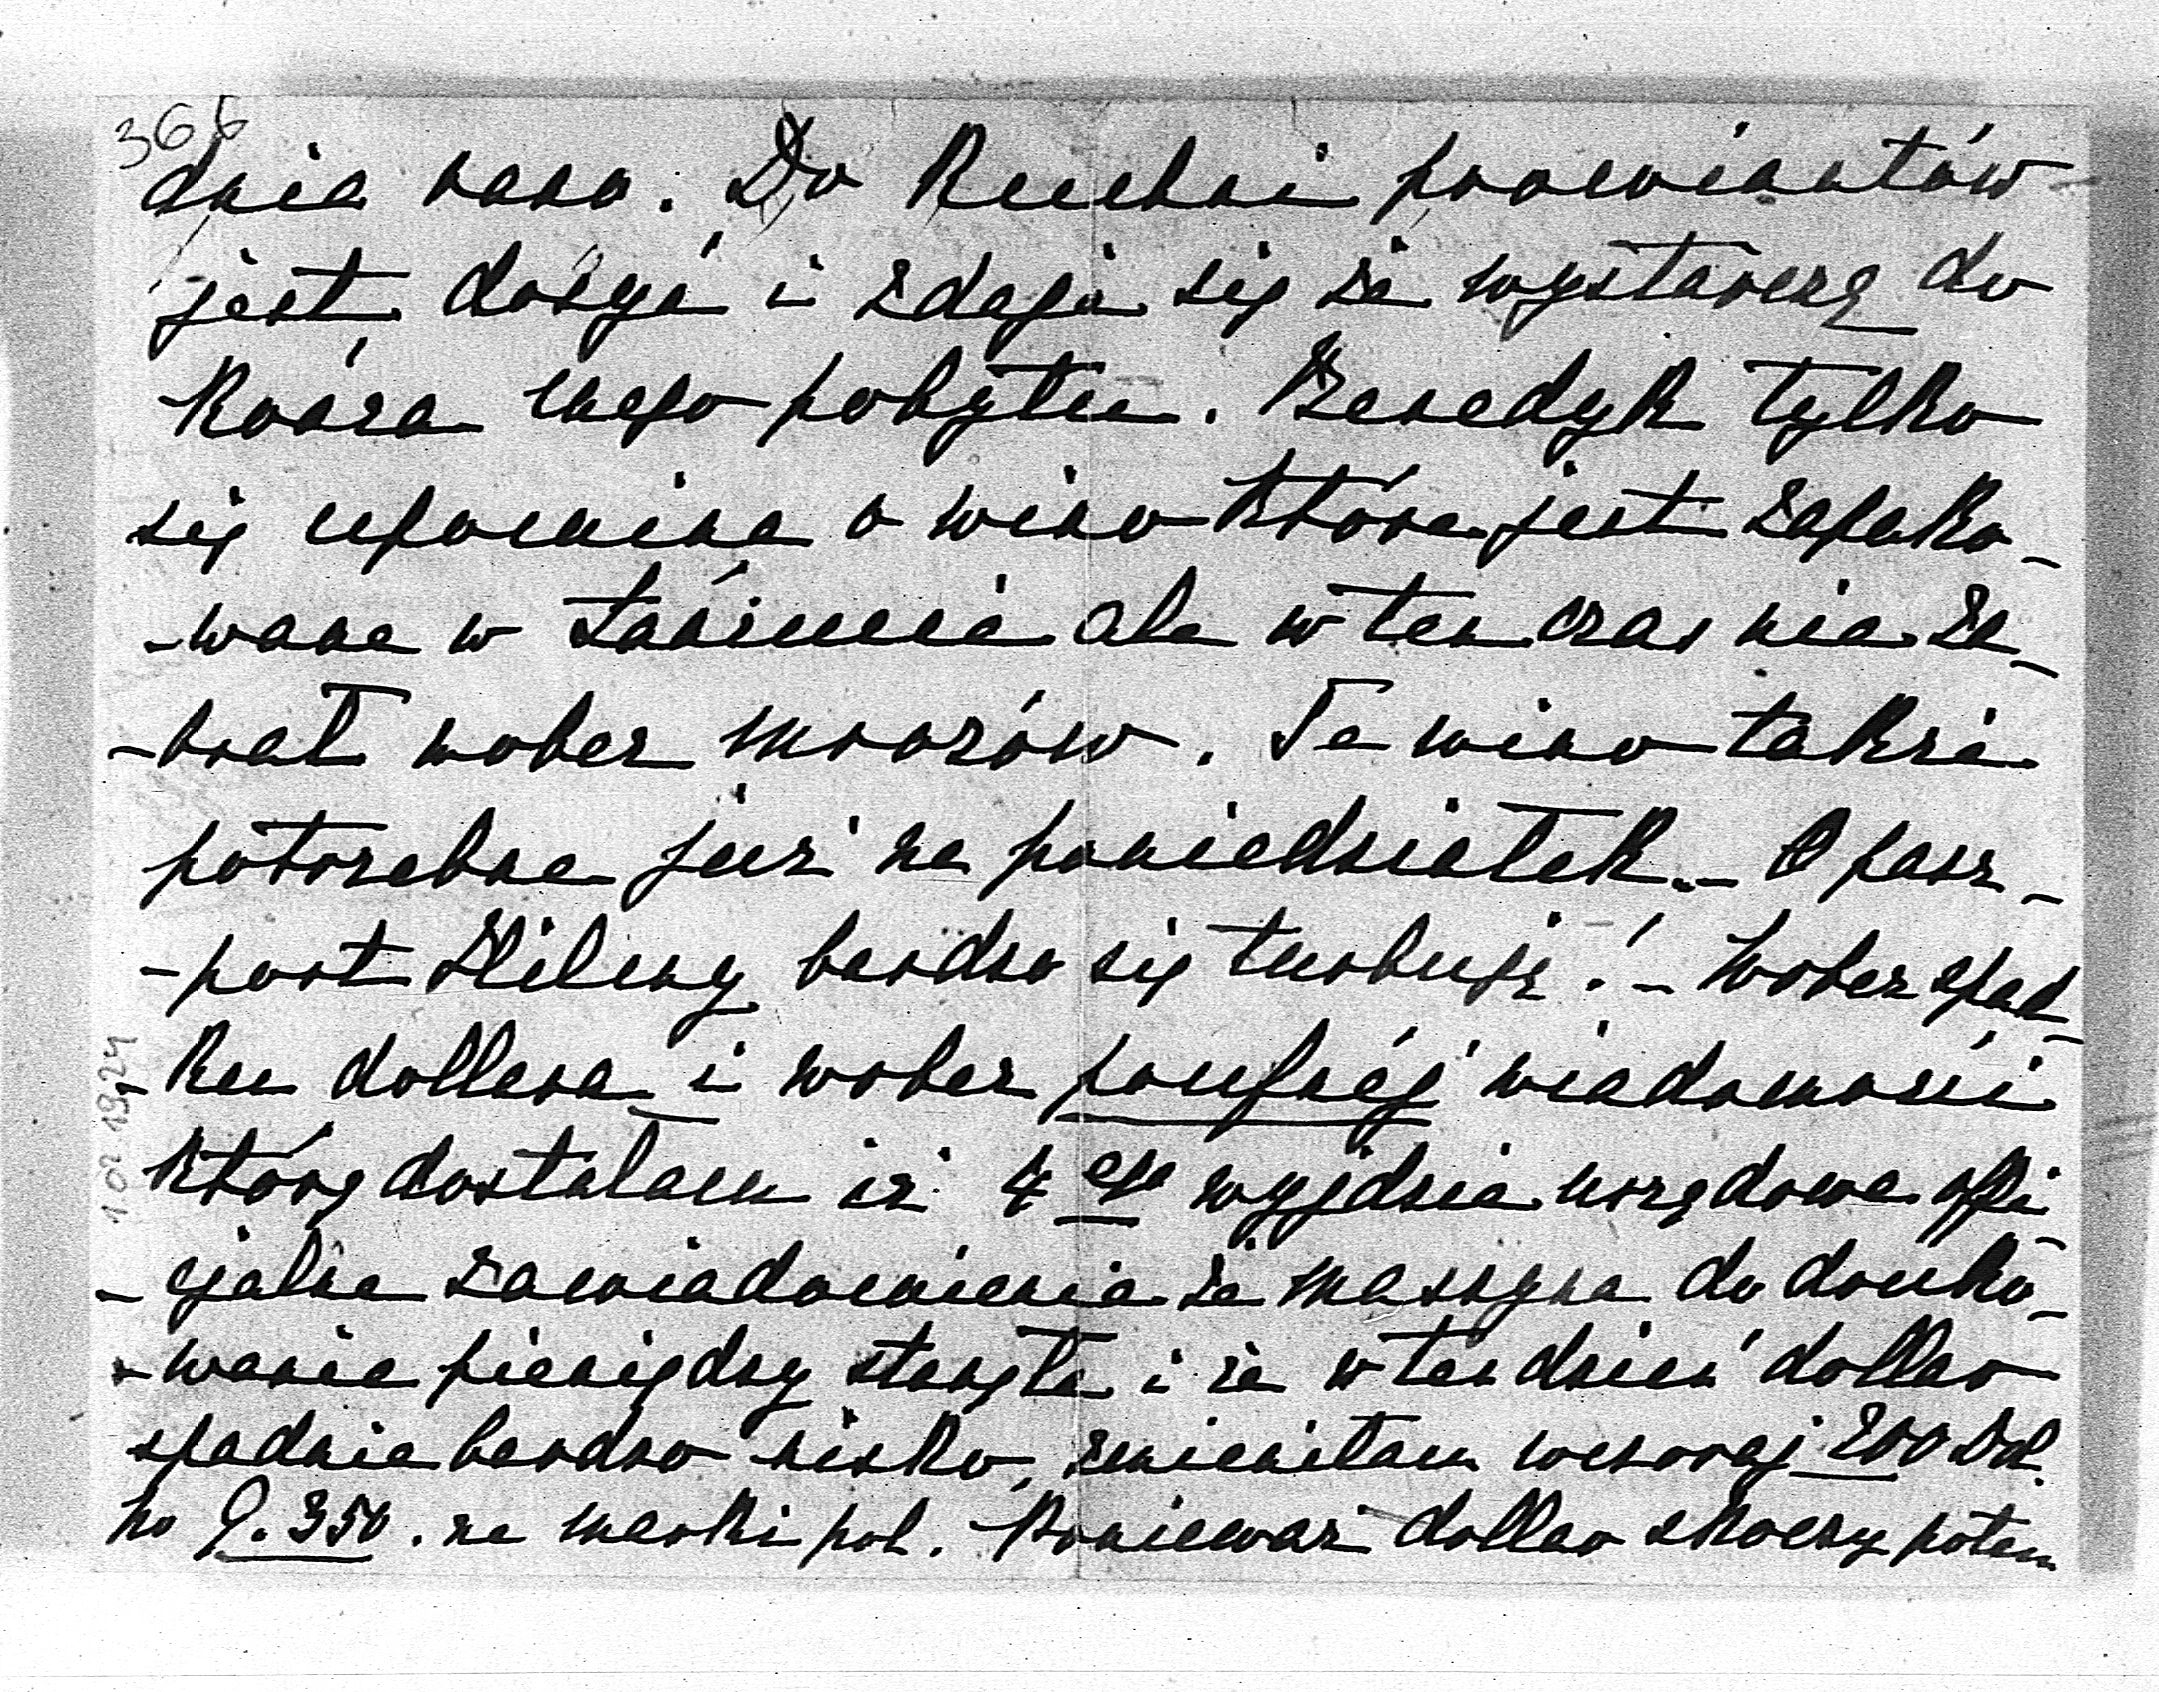 366
dnia rano. Do Kuchni prowiantów
jest dosyć i zdaje się że wystarczą do
końca mego pobytu. Benedyk tylko
się upomina o wino które jest zapako-
-wane w Łańcucie ale w ten czas nie za-
-brał wobec mrozów. Te wino także
potrzebne już na poniedziałek. - O pasz-
-port Hileny bardzo się turbuję! - Wobec spad-
-ku dollara i wobec poufnéj wiadomości
którą dostałam iż 4 ego wyjdzie urzędowe offi-
-cjalne zawiadomienie że maszyna do druko-
-wania pieniędzy stanęła i że w ten dzień dollar
spadnie bardzo nisko, zmieniłam wczoraj 200 Dol.
po 9.350. na marki pol. Ponieważ dollar skoczy potem
1 02 1924